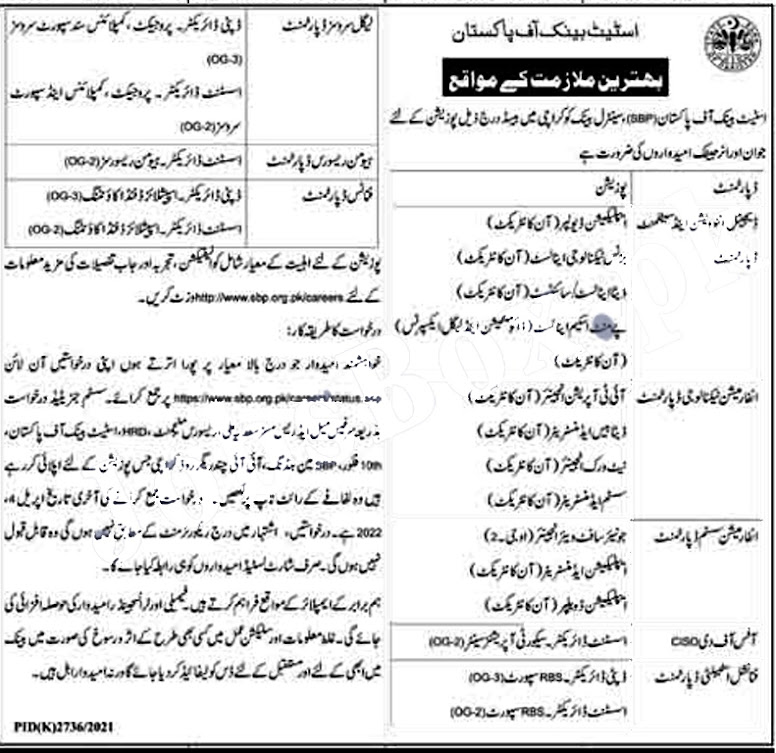 اسٹیٹ بینک آف پاکستان
بہترین ملازمت کے مواقع
اسٹیٹ بینک آف پاکستان (SBP)، سینٹرل بینک کو کراچی میں بیسڈ درج ذیل پوزیشن کے لئے
جوان اور انرجیٹک امیدواروں کی ضرورت ہے
ڈپارٹمنٹ پوزیشن
ڈیجیٹل انوویشن اینڈ سیٹلمنٹ ڈپارٹمنٹ
اپلیکیشن ڈیولپر (آن کانٹریکٹ)
بزنس ٹیکنالوجی اینالسٹ (آن کانٹریکٹ)
ڈیٹا اینالسٹ/سائنٹسٹ (آن کانٹریکٹ)
پے منٹ اسکیم اینالسٹ (ڈاکومنٹیشن اینڈ لیگل ایکسپرٹس)
(آن کانٹریکٹ)
انفارمیشن ٹیکنالوجی ڈپارٹمنٹ
آئی ٹی آپریشن انجینئر (آن کانٹریکٹ)
ڈیٹا بیس ایڈمنسٹریٹر (آن کانٹریکٹ)
نیٹ ورک انجینئر (آن کانٹریکٹ)
سسٹم ایڈمنسٹریٹر (آن کانٹریکٹ)
انفارمیشن سسٹم ڈپارٹمنٹ
جونیئر سافٹ ویئر انجینئر (او جی۔2)
اپلیکیشن ایڈمنسٹریٹر (آن کانٹریکٹ)
اپلیکیشن ڈویلپر (آن کانٹریکٹ)
آفس آف دی CISO
اسسٹنٹ ڈائریکٹر۔ سیکورٹی آپریشنز سینٹر (OG-2)
فنانشل اسٹیبلٹی ڈپارٹمنٹ
ڈپٹی ڈائریکٹر۔ RBS سپورٹ (OG-3)
اسسٹنٹ ڈائریکٹر۔ RBS سپورٹ (OG-2)
لیگل سروسز ڈپارٹمنٹ
ڈپٹی ڈائریکٹر۔ پروجیکٹ، کمپلائنس سند سپورٹ سروسز
(OG-3)
اسسٹنٹ ڈائریکٹر۔ پروجیکٹ، کمپلائنس اینڈ سپورٹ
سروسز (OG-2)
ہیومن ریسورس ڈپارٹمنٹ
اسسٹنٹ ڈائریکٹر۔ ہیومن ریسورسز (OG-2)
فنانس ڈپارٹمنٹ
ڈپٹی ڈائریکٹر۔ اسپیشلائزڈ فنڈ اکاؤنٹنگ (OG-3)
اسسٹنٹ ڈائریکٹر۔ اسپیشلائزڈ فنڈ اکاؤنٹنگ (OG-2)
پوزیشن کے لئے اہلیت کے معیار شامل کوالیفکیشن، تجربہ اور جاب تفصیلات کی مزید معلومات
کے لئے http://www.sbp.org.pk/careers وزٹ کریں۔
درخواست کا طریقہ کار:
خواہشمند امیدوار جو درج بالا معیار پر پورا اترتے ہوں اپنی درخواستیں آن لائن
پر جمع کرائے۔ سسٹم جنریٹیڈ درخواست
بذریعہ سرفیس میل ایڈریس مسز سعدیہ علی، ریسورس منیجمنٹ، HRD، اسٹیٹ بینک آف پاکستان،
10th فلور، SBP مین بلڈنگ، آئی آئی چندریگر روڈ کراچی جس پوزیشن کے لئے اپلائی کر رہے
ہیں وہ لفافے کے رائٹ ٹاپ پر لکھیں۔ درخواست جمع کرانے کی آخری تاریخ اپریل 4،
2022 ہے۔ درخواستیں، اشتہار میں درج ریکوئرمنٹ کے مطابق نہیں ہوں گی وہ قابل قبول
نہیں ہوں گی۔ صرف شارٹ لسٹیڈ امیدواروں کو ہی رابطہ کیا جائے گا۔
ہم برابر کے ایمپلائر کے مواقع فراہم کرتے ہیں۔ فیمیلی اور ٹرانسجینڈر امیدوار کی حوصلہ افزائی کی
جائے گی۔ غلط معلومات اور سلیکشن عمل میں کسی بھی طرح کے اثر و رسوخ کی صورت میں بینک
میں ابھی کے لئے اور مستقبل کے لئے ڈس کوالیفائیڈ کر دیا جائے گا ورنہ امیدوار اہل ہیں۔
PID(K)2736/2021